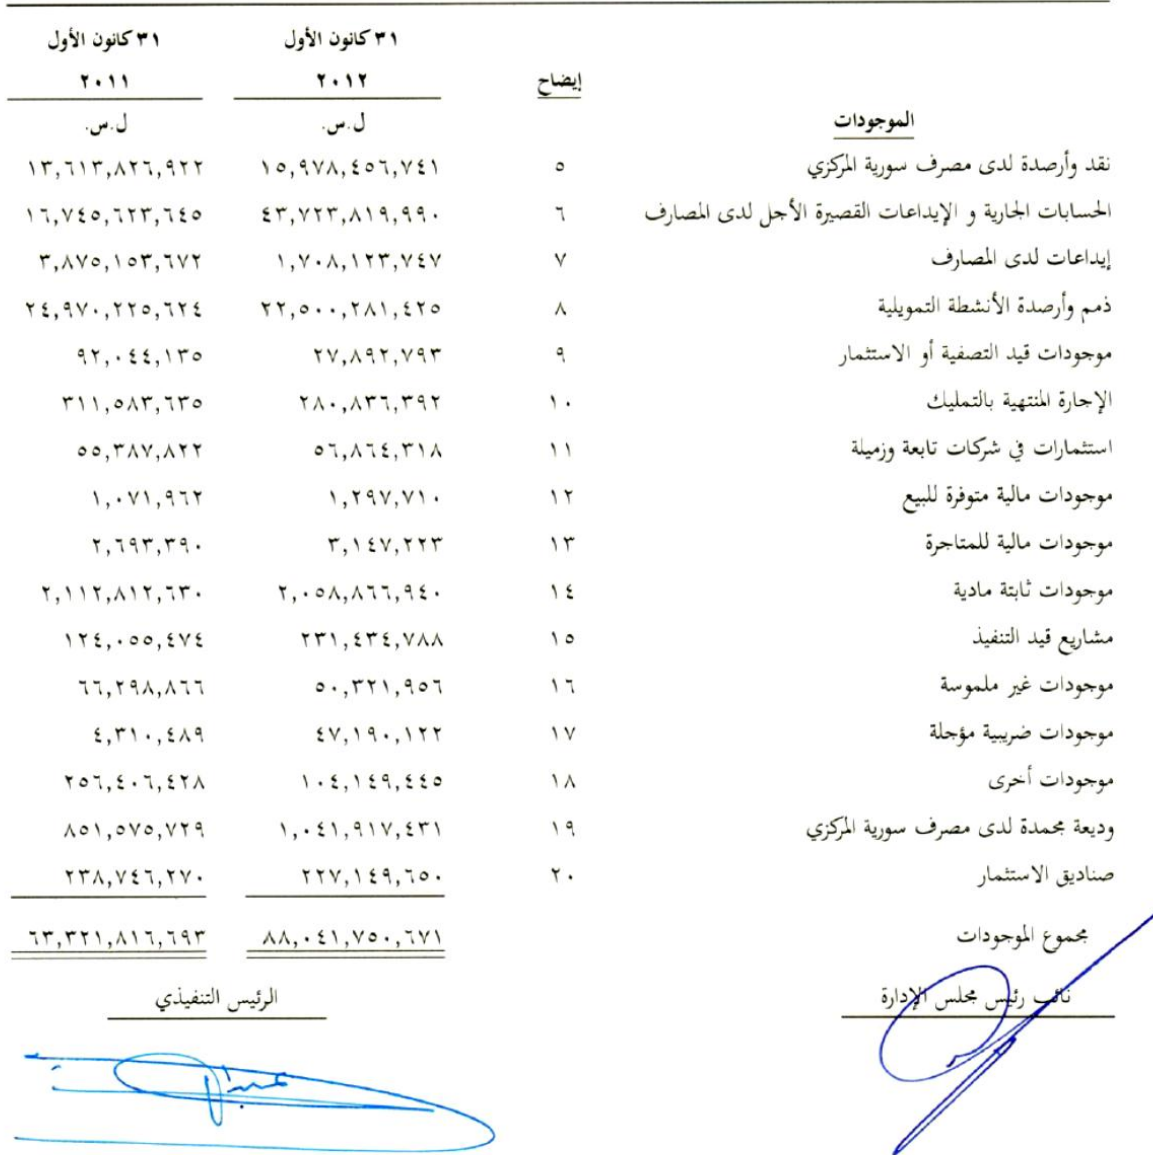 ٣١ كانون الأول ٣١ كانون الأول
إيضاح ٢٠١٢ ٢٠١١
الموجودات ل.س. ل.س.
نقد وأرصدة لدى مصرف سورية المركزي ٥ ١٥,٩٧٨,٤٥٦,٧٤١ ١٣,٦١٣,٨٢٦,٩٢٢
الحسابات الجارية و الإيداعات القصيرة الأجل لدى المصارف ٦ ٤٣,٧٢٣,٨١٩,٩٩٠ ١٦,٧٤٥,٦٢٣,٦٤٥
إيداعات لدى المصارف ٧ ١,٧٠٨,١٢٣,٧٤٧ ٣,٨٧٥,١٥٣,٦٧٢
ذمم وأرصدة الأنشطة التمويلية ٨ ٢٢,٥٠٠,٢٨١,٤٢٥ ٢٤,٩٧٠,٢٢٥,٦٢٤
موجودات قيد التصفية أو الاستثمار ٩ ٢٧,٨٩٢,٧٩٣ ٩٢,٠٤٤,١٣٥
الإجارة المنتهية بالتمليك ١٠ ٢٨٠,٨٣٦,٣٩٢ ٣١١,٥٨٣,٦٣٥
استثمارات في شركات تابعة وزميلة ١١ ٥٦,٨٦٤,٣١٨ ٥٥,٣٨٧,٨٢٢
موجودات مالية متوفرة للبيع ١٢ ١,٢٩٧,٧١٠ ١,٠٧١,٩٦٢
موجودات مالية للمتاجرة ١٣ ٣,١٤٧,٢٢٣ ٢,٦٩٣,٣٩٠
موجودات ثابتة مادية ١٤ ٢,٠٥٨,٨٦٦,٩٤٠ ٢,١١٢,٨١٢,٦٣٠
مشاريع قيد التنفيذ ١٥ ٢٣١,٤٣٤,٧٨٨ ١٢٤,٠٥٥,٤٧٤
موجودات غير ملموسة ١٦ ٥٠,٣٢١,٩٥٦ ٦٦,٢٩٨,٨٦٦
موجودات ضريبية مؤجلة ١٧ ٤٧,١٩٠,١٢٢ ٤,٣١٠,٤٨٩
موجودات أخرى ١٨ ١٠٤,١٤٩,٤٤٥ ٢٥٦,٤٠٦,٤٢٨
وديعة مجمدة لدى مصرف سورية المركزي ١٩ ١,٠٤١,٩١٧,٤٣١ ٨٥١,٥٧٥,٧٢٩
صناديق الاستثمار ٢٠ ٢٢٧,١٤٩,٦٥٠ ٢٣٨,٧٤٦,٢٧٠
مجموع الموجودات ٨٨,٠٤١,٧٥٠,٦٧١ ٦٣,٣٢١,٨١٦,٦٩٣
نائب رئيس مجلس الإدارة الرئيس التنفيذي